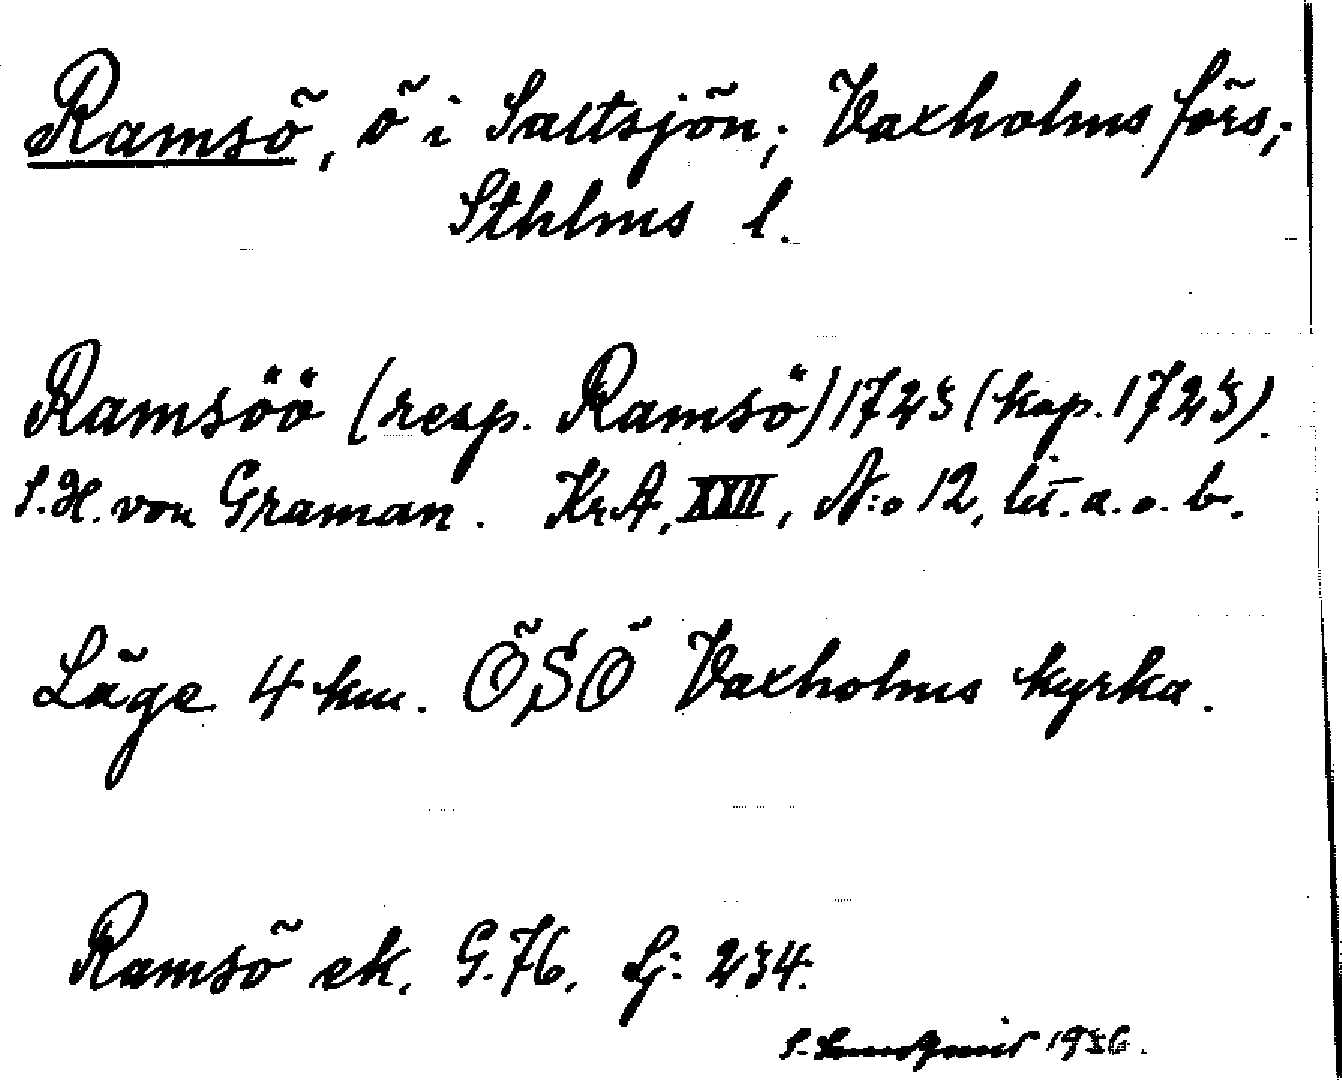 Ramsö, ö i Saltsjön; Vaxholms förs;
Sthlms l.
Ramsöö (resp. Ramsö) 1723 (kop. 1723).
S.H. von Graman. KrA, XXII, N:o 12, lit. a. o. b.
Läge 4 km. ÖSÖ Vaxholms kyrka.
Ramsö ek. G.76. Lj: 234.
S. Lundquist 1936.